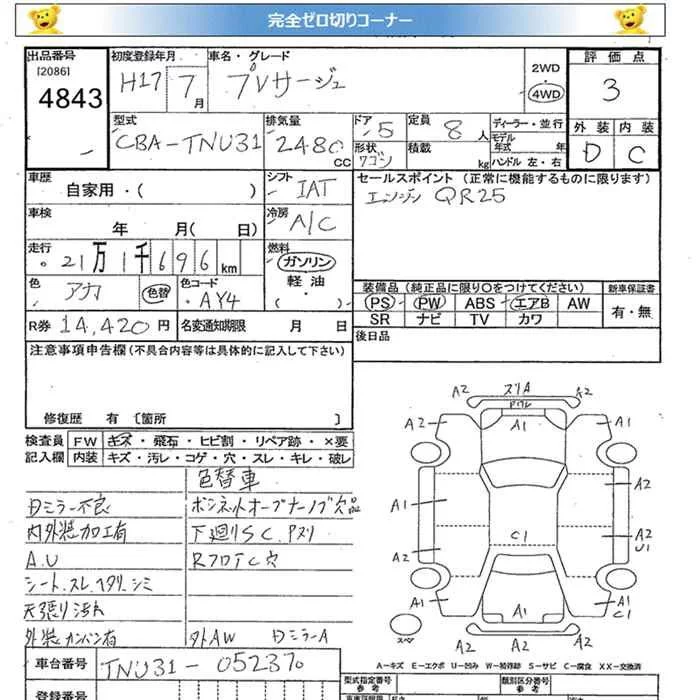 完全ゼロ切りコーナー
出品番号
[2086]
4843
初度登録年月
H17 7月
車名・グレード
プレサージュ
2WD
4WD
評価点
3
外装 内装
D C
型式
CBA-TNU31
排気量
2480cc
ドア 5
形状 ワゴン
定員 8人
積載 kg
ディーラー・並行
モデル年式 年
ハンドル 左・右
車歴
自家用・( )
シフト
IAT
セールスポイント(正常に機能するものに限ります)
エンジン QR25
車検
年 月( 日)
冷房
A/C
走行
21万1千696km
燃料
ガソリン
軽油
( )
色
アカ
色替
色コード
AY4
装備品(純正品に限り○をつけてください)
新車保証書
PS PW ABS エアB AW
SR ナビ TV カワ
有・無
R券 14,420円
名変通知期限 月 日
後日品
注意事項申告欄(不具合内容等は具体的に記入して下さい)
修復歴 有 〔箇所 〕
検査員記入欄
FW キズ・飛石・ヒビ割・リペア跡・×要
内装 キズ・汚レ・コゲ・穴・スレ・キレ・破レ
色替車
Dミラー不良
ボンネットオープナーノブ欠品
内外装加工有
下廻りSC.Pスリ
A.U
RフロTC穴
シート.スレ.ヘタリ.シミ
天張り汚れ
外装カンバン有
外AW DミラーA
A2 スリA A2
A2 A1 A1
A1 A2
C1
A2 A2
U1
A1 A1 A1
C1
A2 A2
スペア
A-キズ E-エクボ U-凹み W-補修跡 S-サビ C-腐食 XX-交換済
車台番号
TNU31-052370
登録番号
型式指定番号
参考
類別区分番号
参考